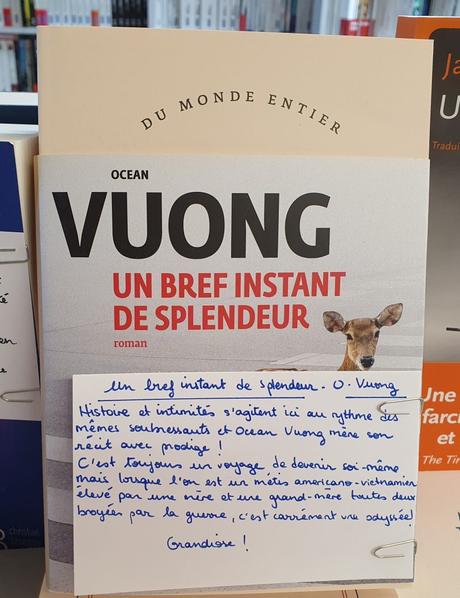 DU MONDE ENTIER
OCEAN
VUONG
UN BREF INSTANT
DE SPLENDEUR
roman
Un bref instant de splendeur - O. Vuong
Histoire et intimités s'agitent ici au rythme des
mêmes soubressauts et Ocean Vuong mène son
récit avec prodige !
C'est toujours un voyage de devenir soi-même,
mais lorsque l'on est un métis americano-vietnamien
élevé par une mère et une grand-mère toutes deux
broyées par la guerre, c'est carrément une odyssée!
Grandiose !
Ja
U
Traduit
Une
farci
et
The Tim
en
christian